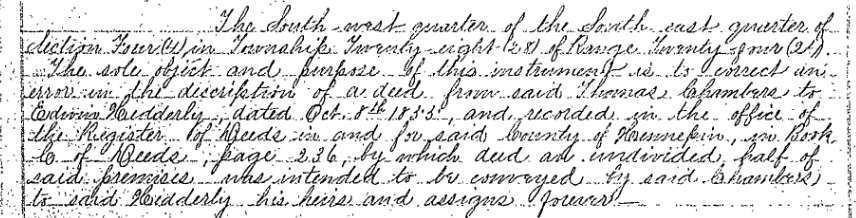 The South west quarter of the South east quarter of
Section Four (4) in Township Twenty eight (28) of Range Twenty four (24).
The sole object and purpose of this instrument is to correct an
error in the description of a deed from said Thomas Chambers to
Edwin Hedderly, dated Oct. 8th 1855, and recorded in the office of
the Register of Deeds in and for said County of Hennepin, in Book
of Deeds, page 236, by which deed an undivided half of
said premises was intended to be conveyed by said Chambers
to said Hedderly his heirs and assigns forever—